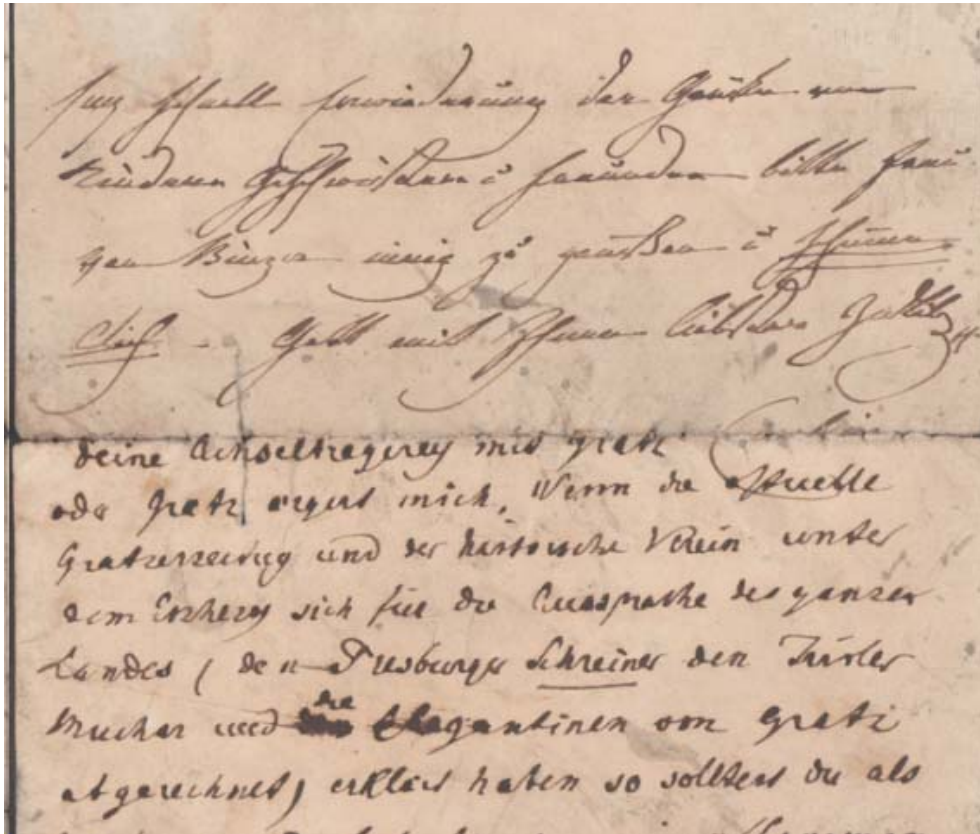 schnell Erwiederung der Grüße von
Kindern Geschwistern u Freunden bitte Frau
von Binzer innig zu grüßen u Ihnen
dich. Gott mit Ihnen liebster
deine Achseltragerey mit Gratz
oder Gretz argert mich. Wenn die
Gratzerzeitung und der historische Verein unter
dem Erzherzog sich für die Aussprache des ganzen
Landes (den Presburger Schreiner den
Muchar und die Elegantinen von Gratz
abgerechnet) erklärt haben so solltest du als